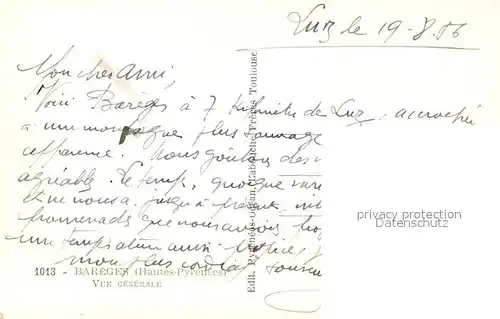 Luz le 19-8.56
Mon cher ami,
Voici Barèges à 7 kilomètres de Luz, accrochée
à une montagne plus sauvage
apparence. Nous goûtons des
agréable. Le temps, quoique
et ne nous a jusqu'à présent
promenades que nous avons
une température aussi
mon plus cordial souven
1013 - BARÈGES (Hautes-Pyrénées)
VUE GÉNÉRALE
Edit. Pyrénées-Océan, Labouche Frères Toulouse
privacy protection
Datenschutz